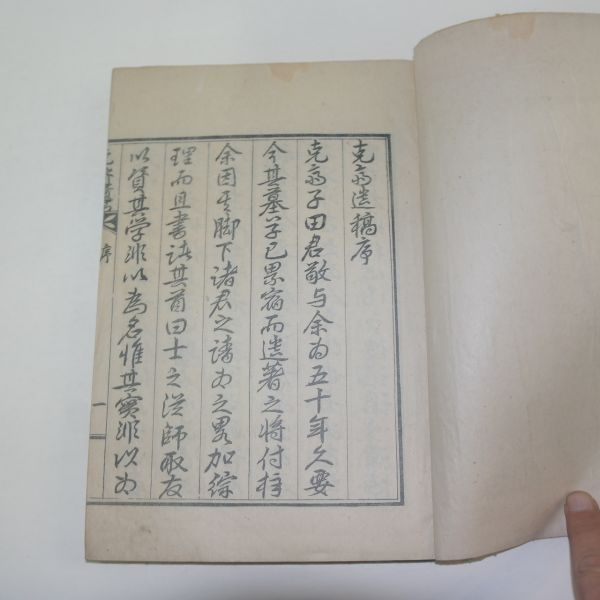 克齋遺稿序
克齋子田君敬与余为五十年久要
今其墓草已累宿而遺著之将付梓
余因其脚下諸君之請为之畧加綜
理而且書諸其首曰士之従師取友
以資其学非以為名惟其實非以为
克齋遺稿 序 一